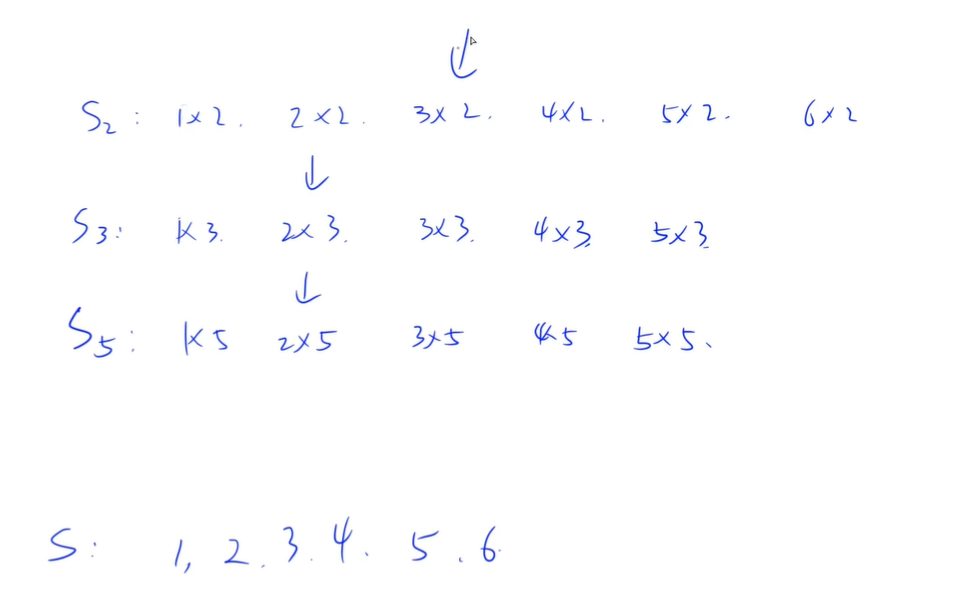 S2: 1×2. 2×2. 3×2. 4×2. 5×2. 6×2
S3: 1×3. 2×3. 3×3. 4×3. 5×3.
S5: 1×5 2×5 3×5 4×5 5×5、
S: 1, 2. 3. 4. 5. 6.